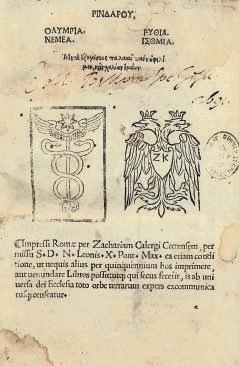 ΠΙΝΔΑΡΟΥ,
ΟΛΥΜΠΙΑ. ΠΥΘΙΑ.
ΝΕΜΕΑ. ΙΣΘΜΙΑ.
Μετὰ ἐξηγήσεως παλαιᾶς
καὶ σχολίων
Z K
Impressi Romæ per Zachariam Calergi Cretensem, per
missu S. D. N. Leonis. X. Pont. Max. ea etiam condi
tione, ut nequis alius per quinquennium hos imprimere,
aut uenundare Libros possit: utq; qui secus fecerit, is ab uni
uersa dei Ecclesia toto orbe terrarum expers excommunica
tusq; censeatur.